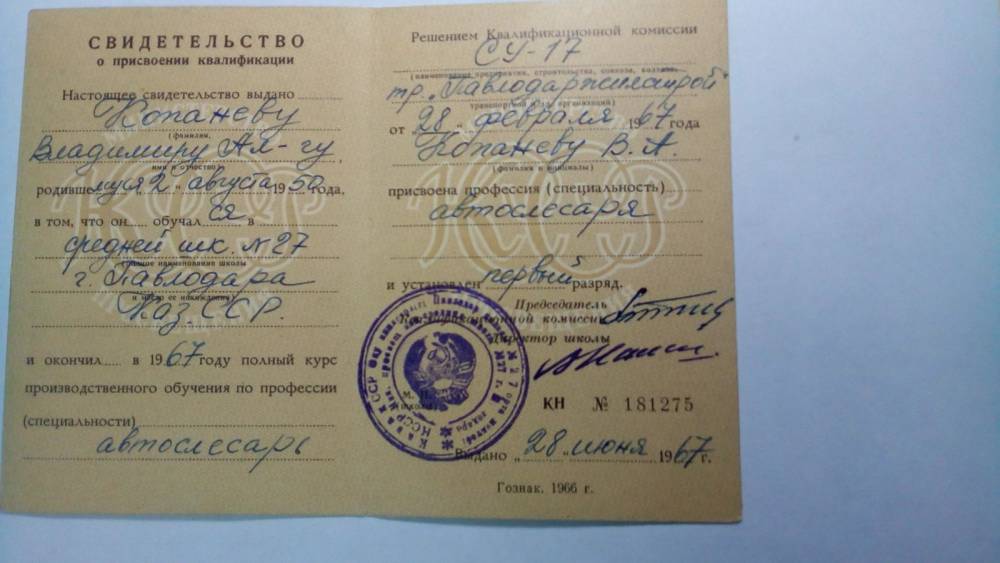 СВИДЕТЕЛЬСТВО
о присвоении квалификации
Настоящее свидетельство выдано
Копаневу
(фамилия,
Владимиру Ал-ру,
имя и отчество)
родившемуся „2" августа 1950 года,
в том, что он обучался в
средней шк. №27
(полное наименование школы
г. Павлодара
и место ее нахождения)
Каз. ССР.
и окончил в 1967 году полный курс
производственного обучения по профессии
(специальности)
автослесарь
Решением Квалификационной комиссии
СУ-17
(наименование предприятия, строительства, совхоза, колхоза,
тр. „Павлодаржилстрой"
транспортной и др. организаций)
от „28" февраля 1967 года
Копаневу В. А.
(фамилия и инициалы)
присвоена профессия (специальность)
автослесаря
и установлен первый разряд.
Председатель
Квалификационной комиссии
Директор школы
М. П.
школы
КН № 181275
Выдано „28" июня 1967 г.
Гознак. 1966 г.